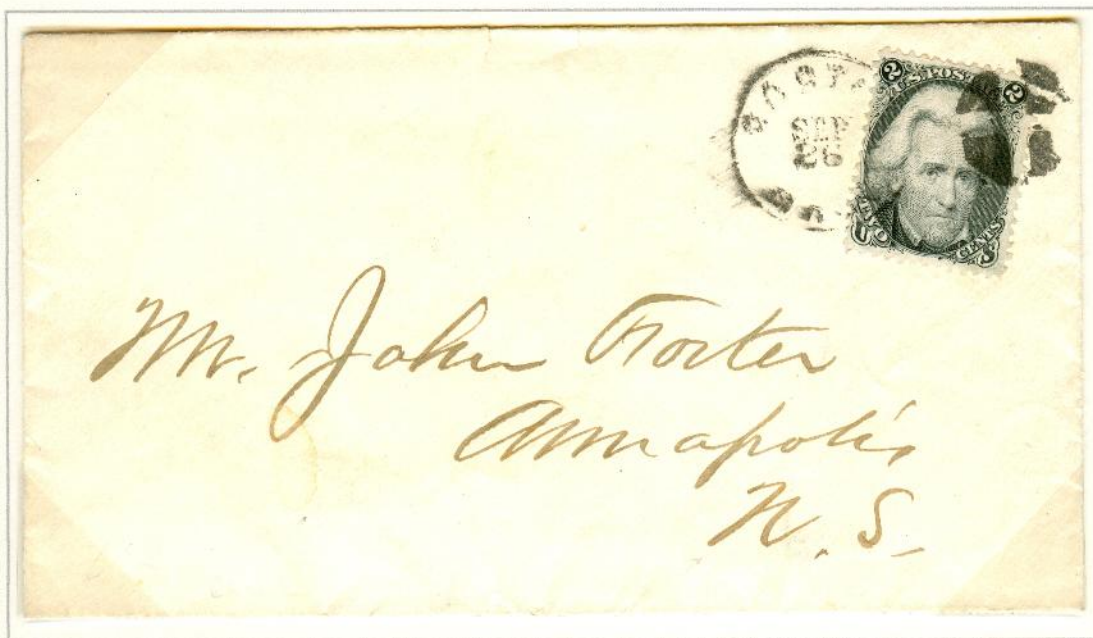 SEP
26
2 U.S. POST 2
TWO CENTS
Mr. John Foster
Annapolis
N. S.